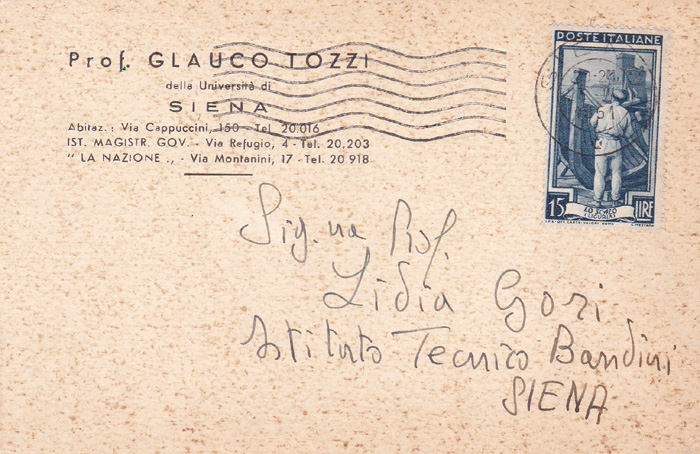 Prof. GLAUCO TOZZI
della Università di
SIENA
Abitaz.: Via Cappuccini, 150 - Tel. 20.016
IST. MAGISTR. GOV. - Via Refugio, 4 - Tel. 20.203
" LA NAZIONE ,, - Via Montanini, 17 - Tel. 20 918
POSTE ITALIANE
15 LIRE
LO SCALO
(LIGURIA)
Sig.na Prof.
Lidia Gori
Istituto Tecnico Bandini
SIENA